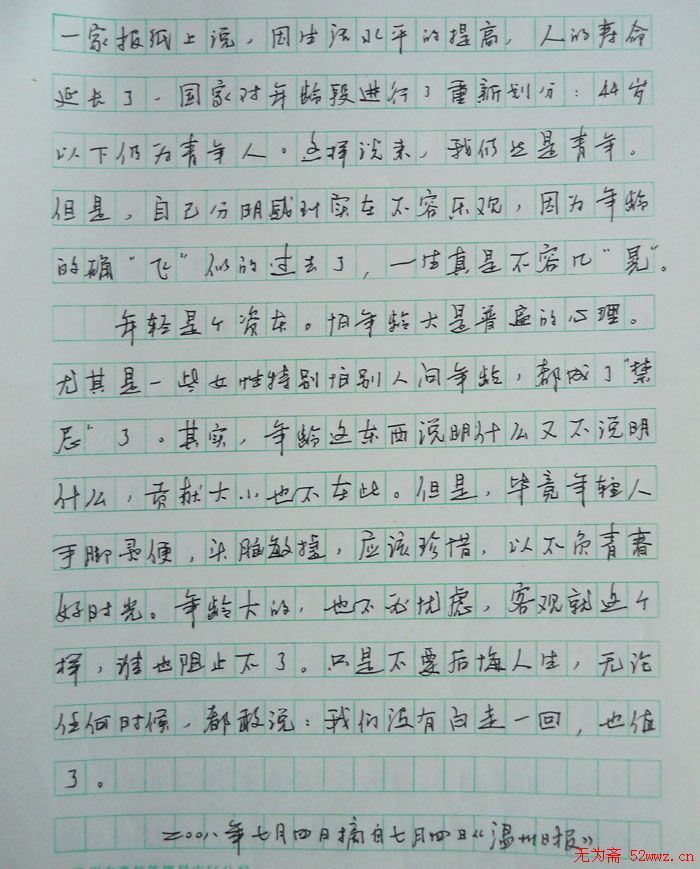 一家报纸上说，因生活水平的提高，人的寿命
延长了。国家对年龄段进行了重新划分：44岁
以下仍为青年人。这样说来，我们还是青年。
但是，自己分明感到实在不容乐观，因为年龄
的确“飞”似的过去了，一生真是不容几“晃”。
年轻是个资本。怕年龄大是普遍的心理。
尤其是一些女性特别怕别人问年龄，都成了“禁
忌”了。其实，年龄这东西说明什么又不说明
什么，贡献大小也不在此。但是，毕竟年轻人
手脚灵便，头脑敏捷，应该珍惜，以不负青春
好时光。年龄大的，也不无忧虑，客观就这个
样，谁也阻止不了。只是不要后悔人生，无论
任何时候，都敢说：我们没有白走一回，也值
了。
年七月四日摘自七月四日《温州日报》
无为斋 52wwz.cn